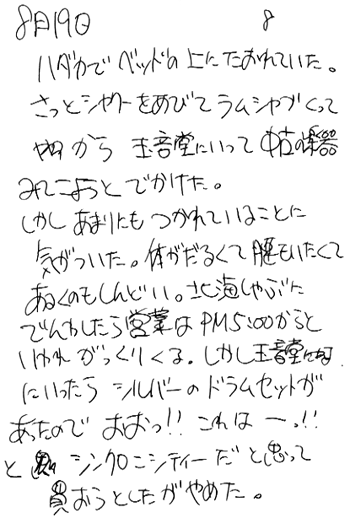 8月19日 8
ハダカでベッドの上にたおれていた。
さっとシャワーをあびてラムシャブくって
やすから 玉音堂にいって中古の楽器
みてこようとでかけた。
しかしあまりにもつかれていることに
気がついた。体がだるくて腰もいたくて
あるくのもしんどい。北海しゃぶに
でんわしたら営業はPM5:00からと
いわれがっくりくる。しかし玉音堂
にいったら シルバーのドラムセットが
あったので おおっ!! これはー。!!
と シンクロニシティーだと思って
買おうとしたがやめた。